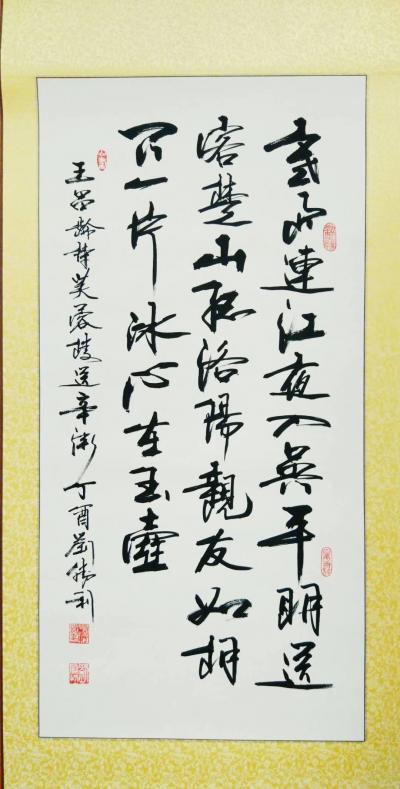 寒雨連江夜入吳平明送
客楚山孤洛陽親友如相
問一片冰心在玉壺
王昌齡詩芙蓉樓送辛漸 丁酉劉